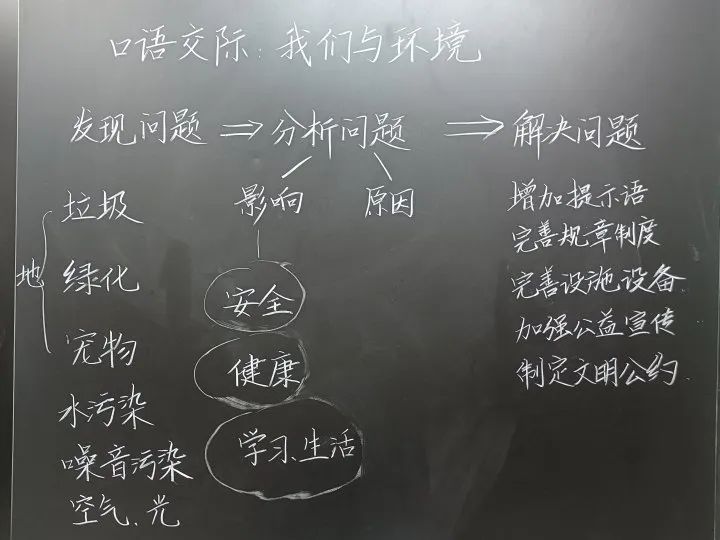 口语交际:我们与环境
发现问题 ⇒ 分析问题 ⇒ 解决问题
影响 原因
地
垃圾
绿化
宠物
水污染
噪音污染
空气、光
安全
健康
学习、生活
增加提示语
完善规章制度
完善设施设备
加强公益宣传
制定文明公约.